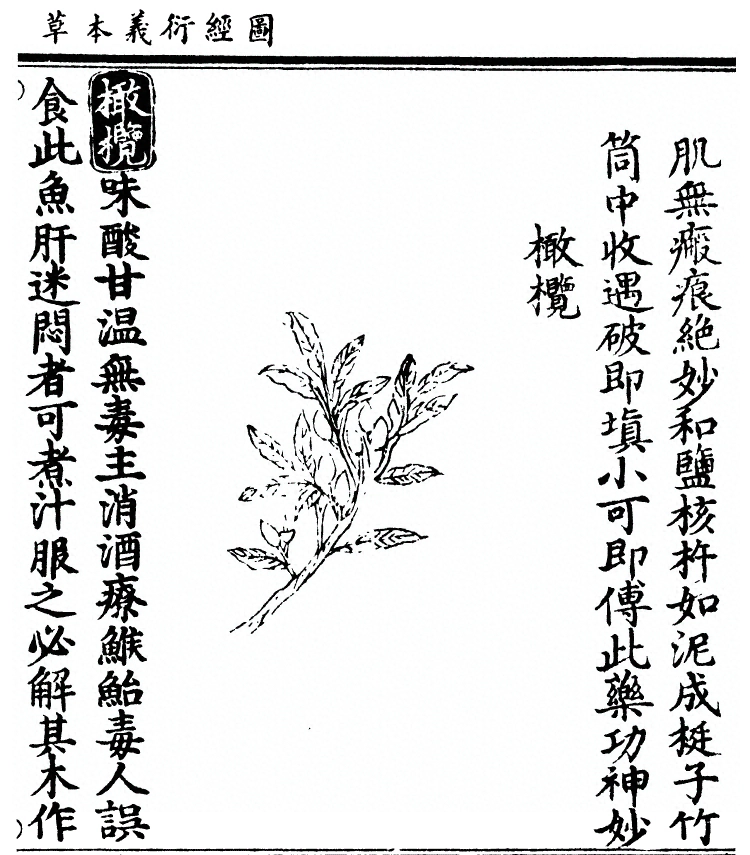 圖經衍義本草
肌無瘢痕絶妙和鹽核杵如泥成梃子竹
筒中收遇破即填小可即傅此藥功神妙
橄欖
橄欖味酸甘温無毒主消酒療鯸鮐毒人誤
食此魚肝迷悶者可煮汁服之必解其木作